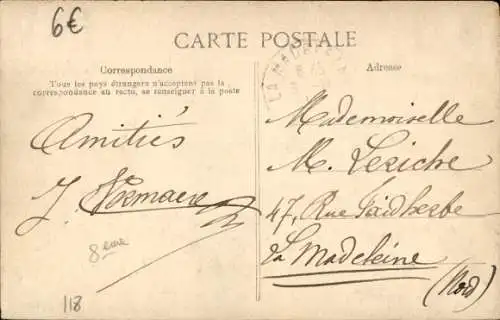 6€
CARTE POSTALE
Correspondance
Tous les pays étrangers n'acceptent pas la
correspondance au recto, se renseigner à la poste
Amitiés
J.
8eme
118
LA MADELEINE
Adresse
Mademoiselle
M. Leriche
47, Rue Faidherbe
La Madeleine
(Nord)